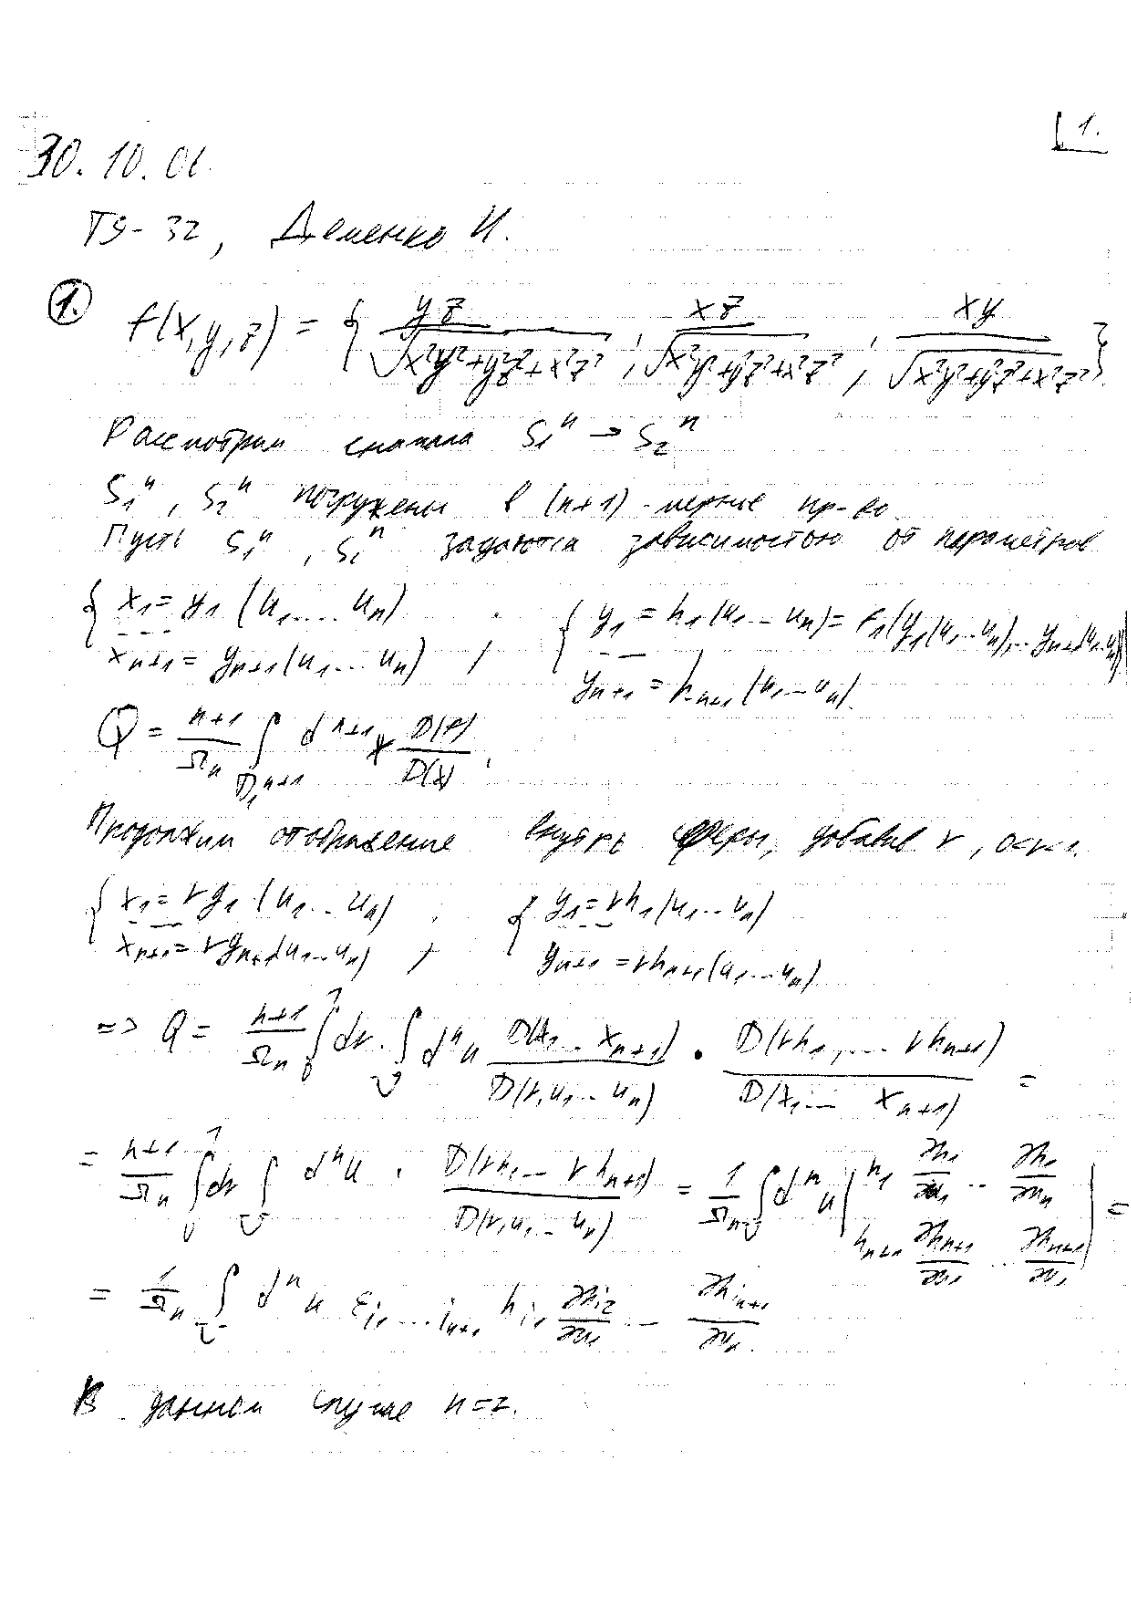 1.
30.10.06.
ТЯ-32, Деменко И.
1. f(x,y,z) = { yz / √(x²y²+y²z²+x²z²) ; xz / √(x²y²+y²z²+x²z²) ; xy / √(x²y²+y²z²+x²z²) }
Рассмотрим сначала S₁ⁿ → S₂ⁿ
S₁ⁿ, S₂ⁿ погружены в (n+1)-мерные пр-во.
Пусть S₁ⁿ, S₂ⁿ задаются зависимостью от параметров
{ x₁ = g₁(u₁...uₙ) { y₁ = h₁(u₁...uₙ) = f₁(g₁(u₁...uₙ),...gₙ₊₁(u₁...uₙ))
--- ---
xₙ₊₁ = gₙ₊₁(u₁...uₙ) , yₙ₊₁ = hₙ₊₁(u₁...uₙ).
Q = (n+1)/Ωₙ ∫_{D₁ⁿ⁺¹} dⁿ⁺¹x D(f)/D(x) ,
Продолжим отображение внутрь сферы, добавив r, 0<r<1.
{ x₁ = rg₁(u₁...uₙ) { y₁ = rh₁(u₁...uₙ)
--- ---
xₙ₊₁ = rgₙ₊₁(u₁...uₙ) , yₙ₊₁ = rhₙ₊₁(u₁...uₙ)
=> Q = (n+1)/Ωₙ ∫₀¹ dr · ∫_U dⁿu D(x₁...xₙ₊₁)/D(r,u₁...uₙ) · D(rh₁,...rhₙ₊₁)/D(x₁...xₙ₊₁) =
= (n+1)/Ωₙ ∫₀¹ dr ∫_U dⁿu · D(rh₁...rhₙ₊₁)/D(r,u₁...uₙ) = 1/Ωₙ ∫_U dⁿu | h₁ ∂h₁/∂u₁ ... ∂h₁/∂uₙ
hₙ₊₁ ∂hₙ₊₁/∂u₁ ... ∂hₙ₊₁/∂u₁ | =
= 1/Ωₙ ∫_U dⁿu ε_{i₁...iₙ₊₁} h_{i₁} ∂h_{i₂}/∂u₁ ... ∂h_{iₙ₊₁}/∂uₙ.
В данном случае n=2.